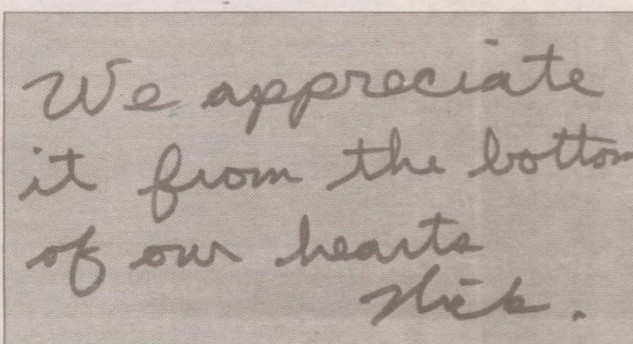 We appreciate
it from the bottom
of our hearts
Nick.